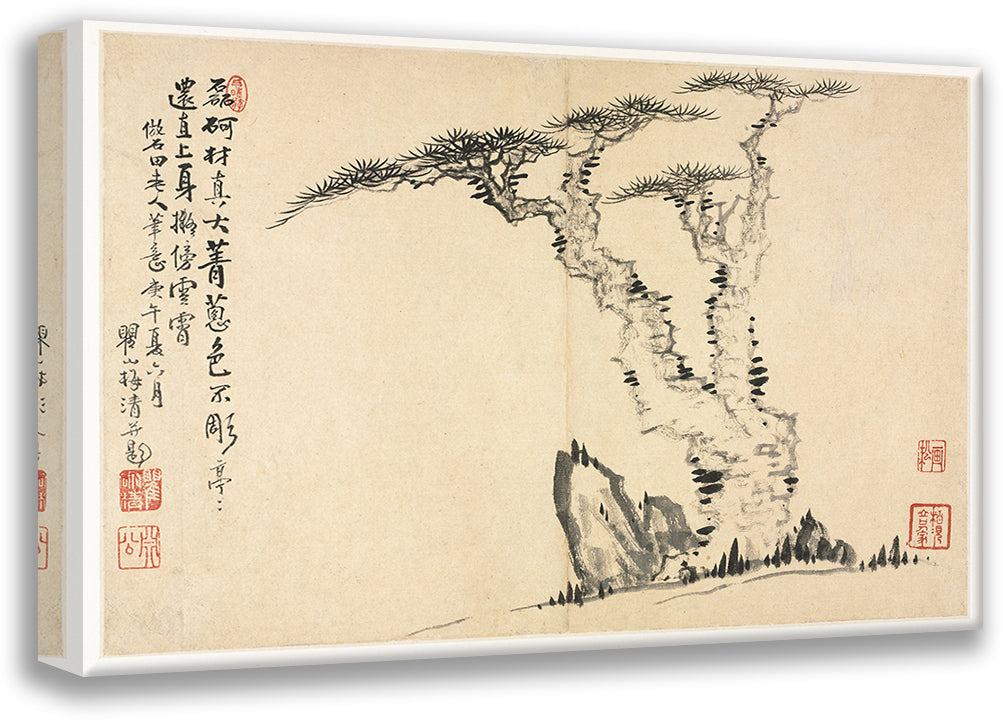 磊砢材真大菁蔥色不彫亭〻
還直上身擬傍雲霄
倣石田老人筆意庚午夏六月
瞿山梅清并題
畫松